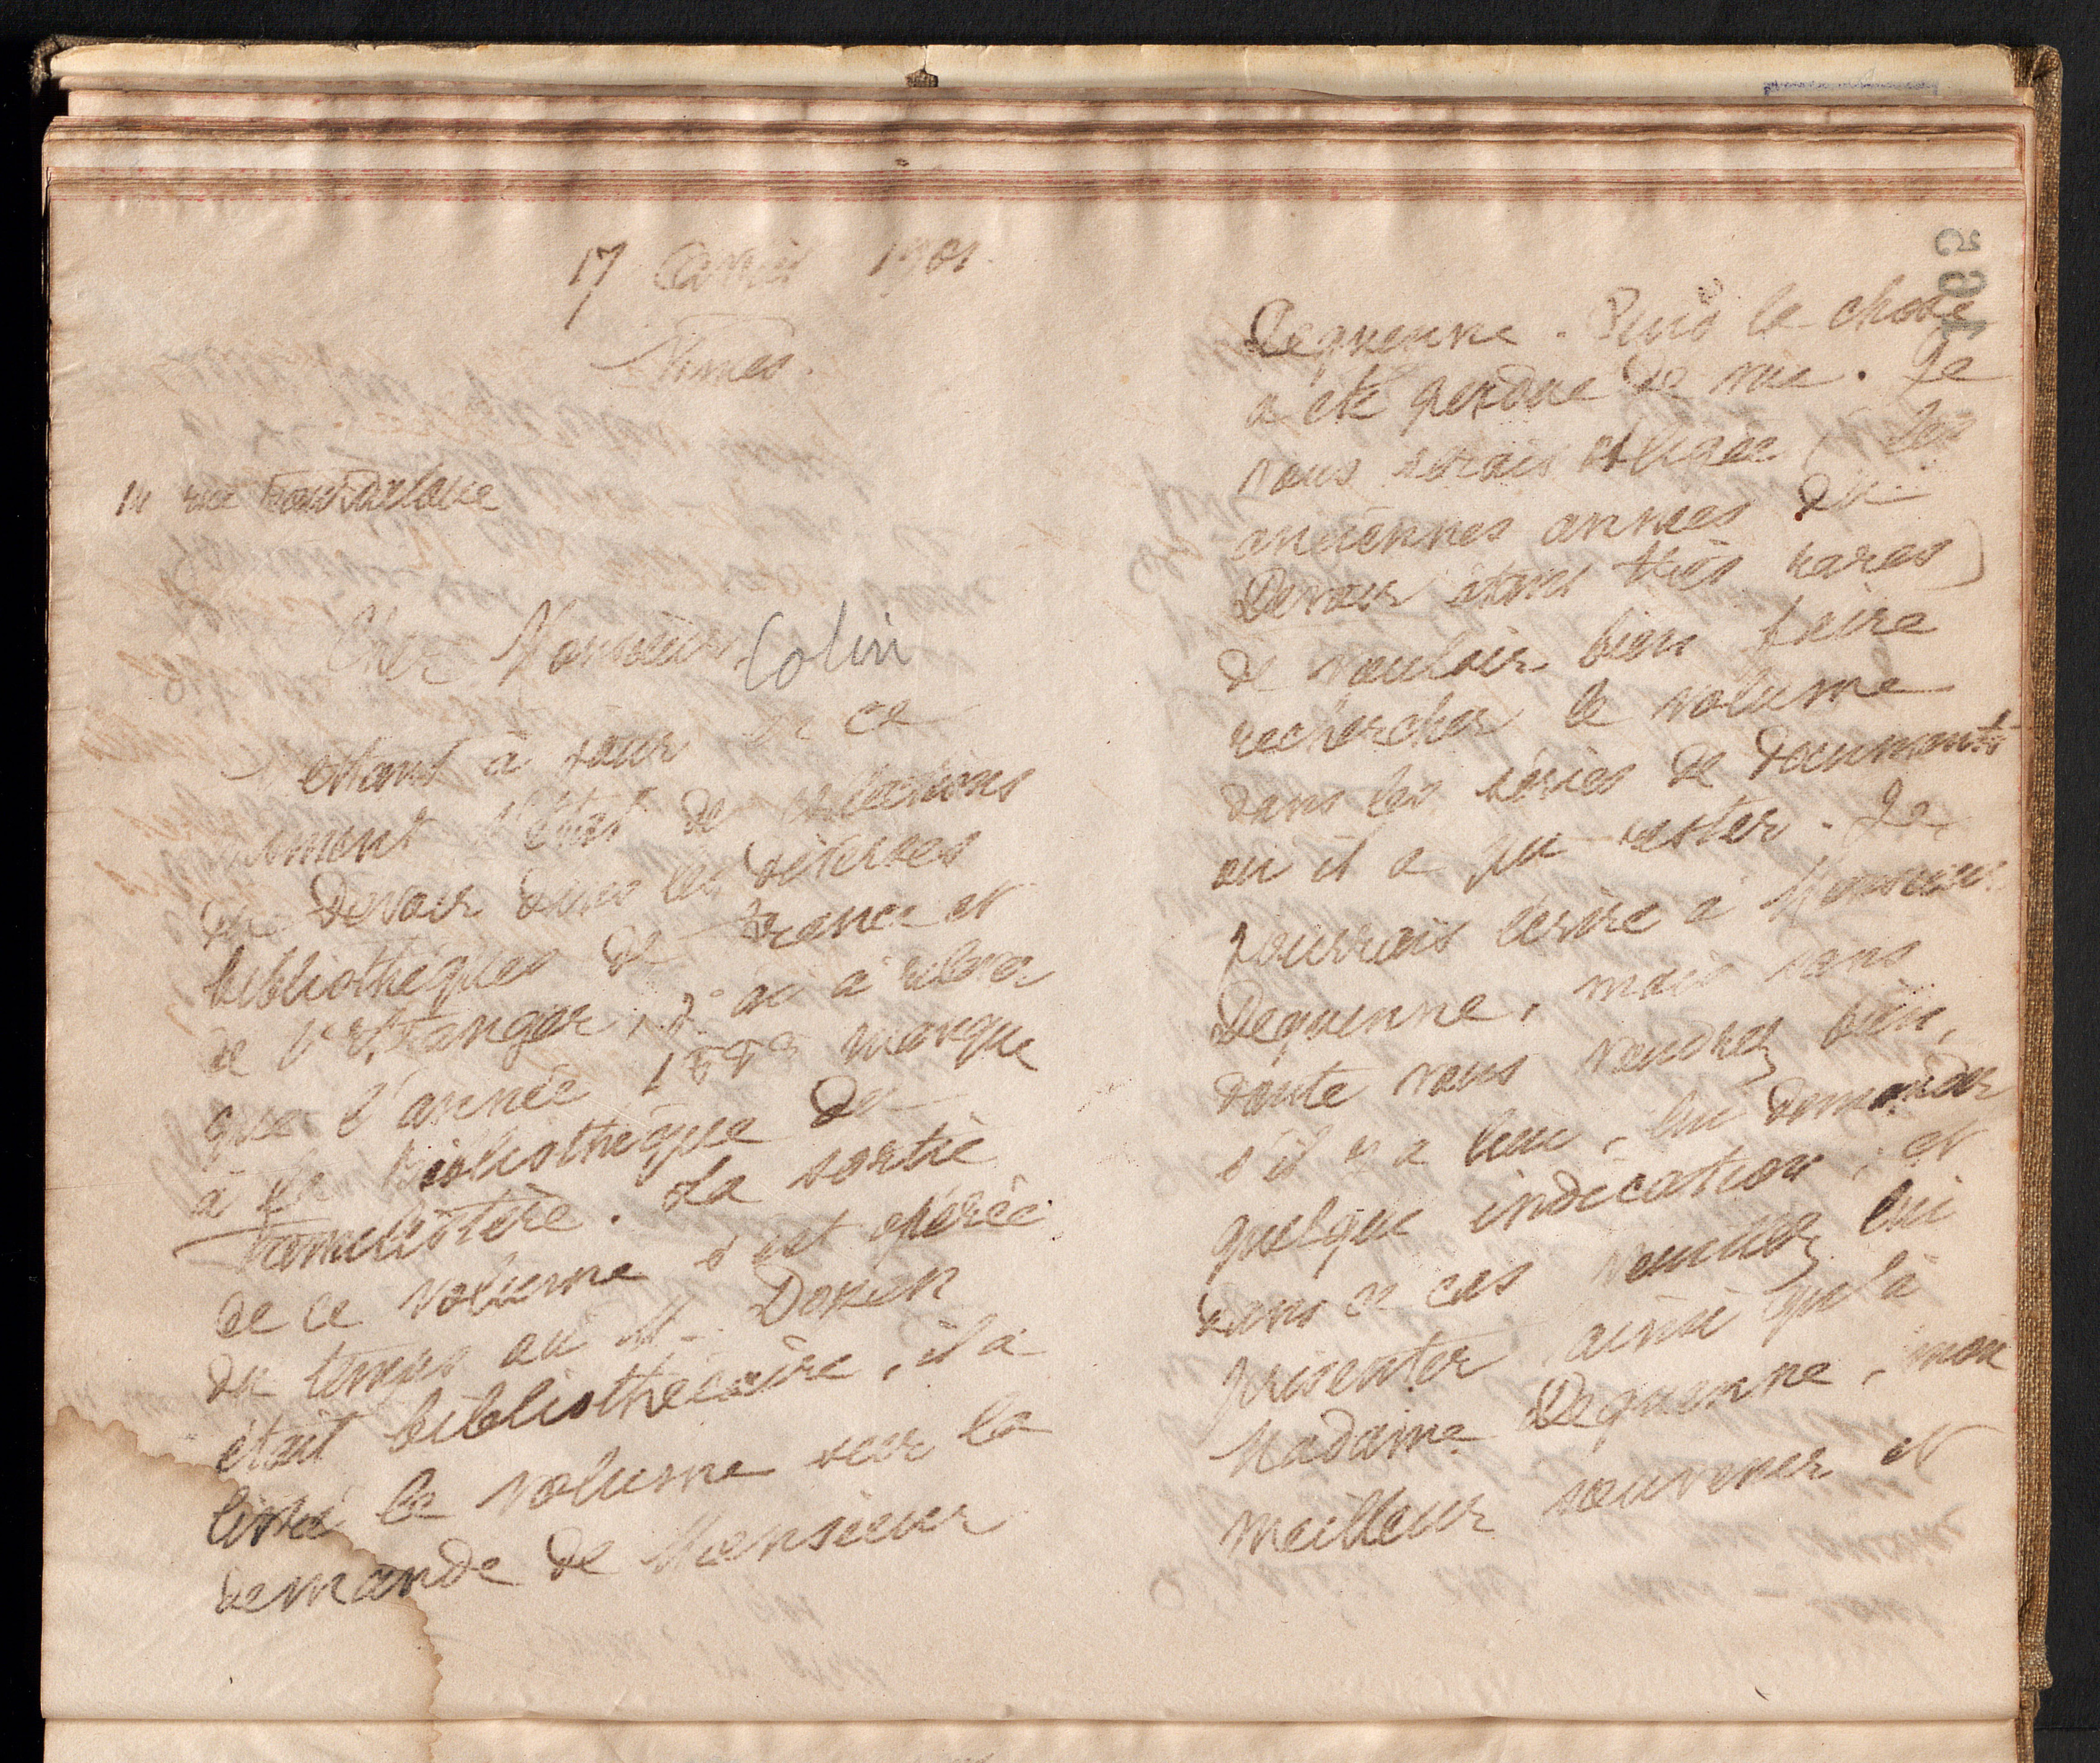 17 avril 1901
Nîmes.
14 rue Bourdaloue
Cher Monsieur Colin
Mettant à jour en ce
moment l'état de collections
du Devoir dans les diverses
bibliothèques de France et
de l'Etranger, j'ai à relever
que l'année manque
à la Bibliothèque du
Familistère. La sortie
de ce volume s'est opérée
du temps où M. Doxen
était bibliothécaire, il a
livré le volume sur la
demande de Monsieur
Dequenne. Puis la chose
a été perdue de vue. Je
vous serais obligée, (les
anciennes années du
Devoir étant très rares)
de vouloir bien faire
rechercher le volume
dans les séries de documents
où il a pu rester. Je
pourrais écrire à Monsieur
Dequenne, mais sans
doute vous voudrez bien,
s'il y a lieu, lui demander
quelque indication; et
dans ce cas veuillez lui
présenter ainsi qu'à
Madame Dequenne, mon
meilleur souvenir et
165